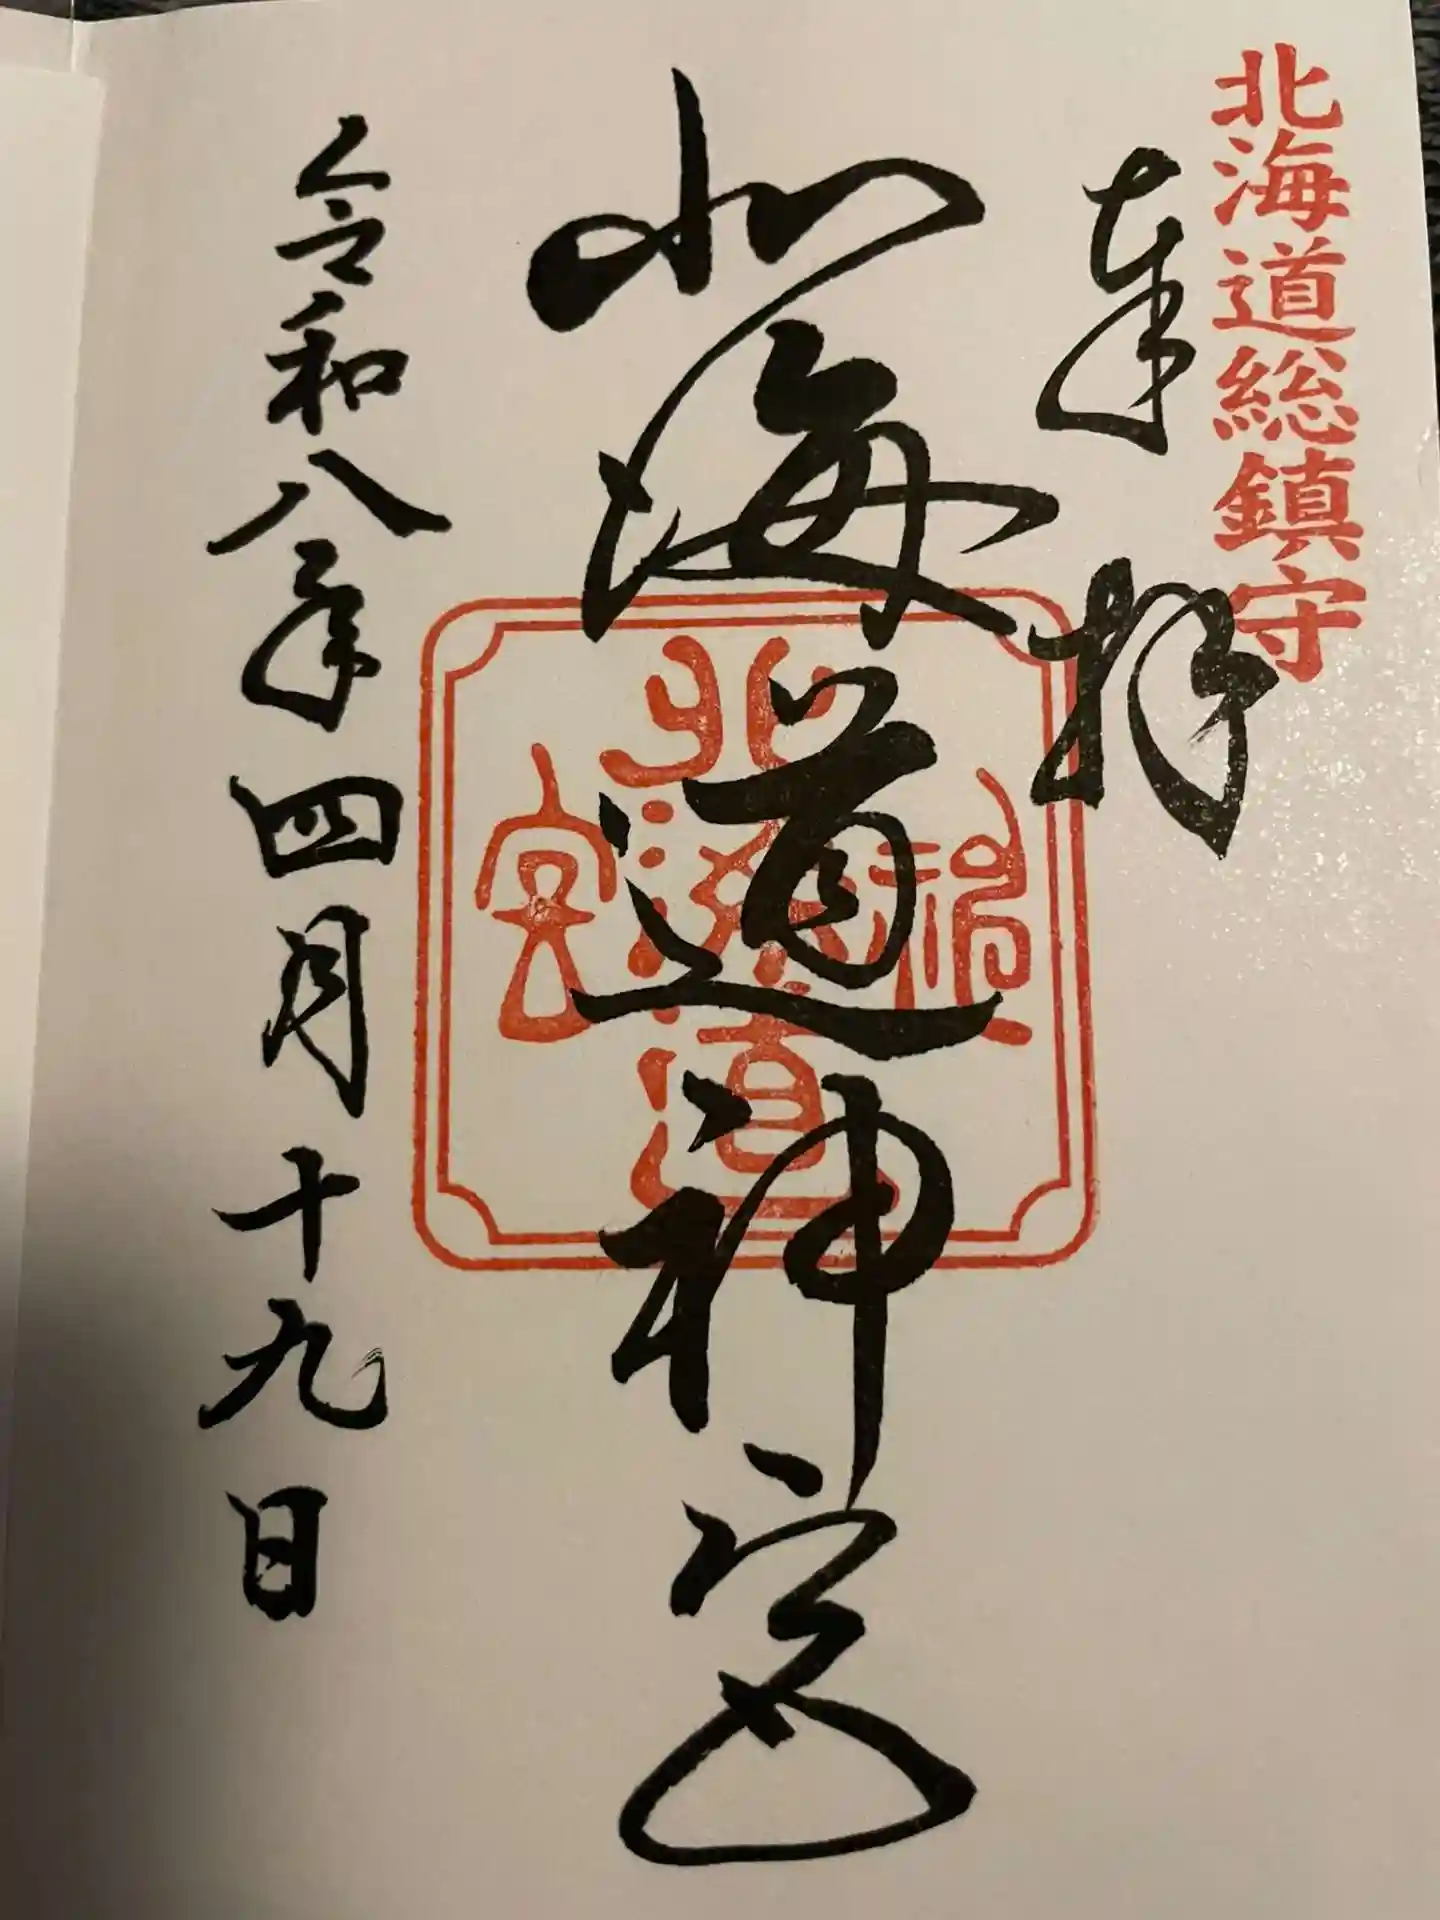 北海道総鎮守
奉拝
北海道神宮
北海道神宮
令和八年四月十九日